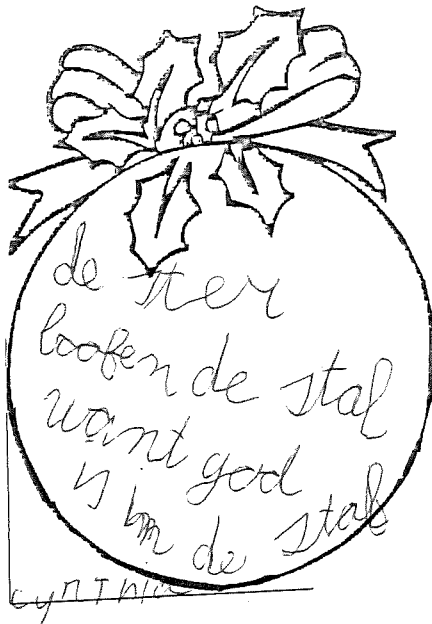 de ster
boofen de stal
want god
is in de stal
cynthia